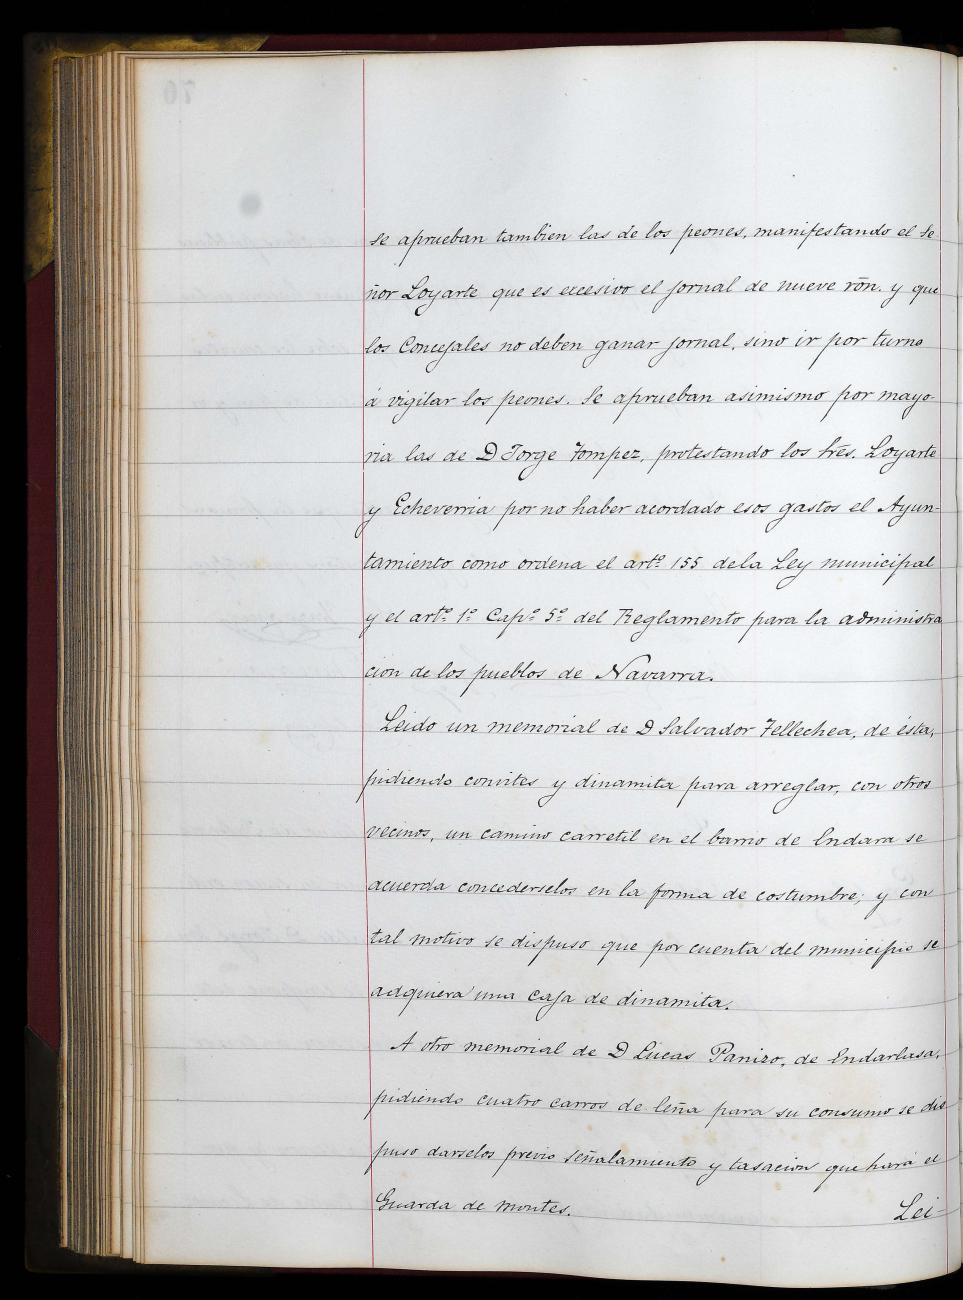 se aprueban tambien las de los peones, manifestando el Se
ñor Loyarte que es excesivo el jornal de nueve rōn. y que
los Concejales no deben ganar jornal, sino ir por turno
á vigilar los peones. Se aprueban asimismo por mayo-
ria las de D Jorge Tompez, protestando los Sres. Loyarte
y Echeverria por no haber acordado esos gastos el Ayun-
tamiento como ordena el artº 155 de la Ley municipal
y el artº 1º Capº 5º del Reglamento para la administra
cion de los pueblos de Navarra.
Leido un memorial de D Salvador Tellechea, de ésta,
pidiendo convites y dinamita para arreglar, con otros
vecinos, un camino carretil en el barrio de Endara se
acuerda concederselos en la forma de costumbre; y con
tal motivo se dispuso que por cuenta del municipio se
adquiera una caja de dinamita.
A otro memorial de D Lucas Panizo, de Endarlasa,
pidiendo cuatro carros de leña para su consumo se dis
puso darselos previo señalamiento y tasacion que hará el
Guarda de montes. Lei-